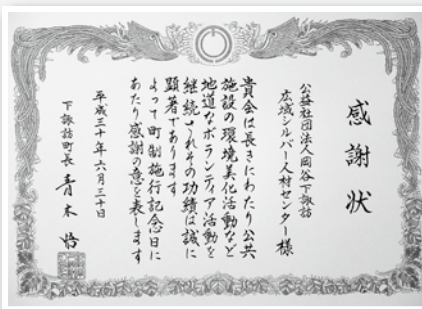 感謝状
公益社団法人岡谷下諏訪
広域シルバー人材センター様
貴会は長きにわたり公共
施設の環境美化活動など
地道なボランティア活動を
継続されその功績は誠に
顕著であります
よって町制施行記念日に
あたり感謝の意を表します
平成三十年六月三十日
下諏訪町長 青木悟